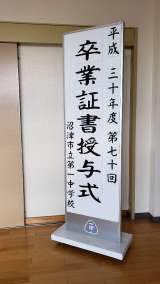 平成三十年度 第七十回
卒業証書授与式
沼津市立第一中学校